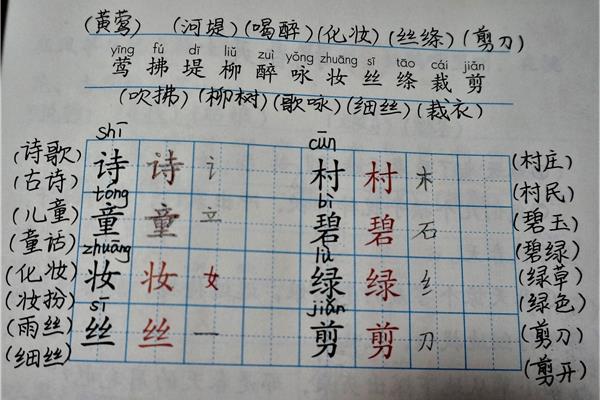 (黄莺) (河堤)(喝醉)(化妆)(丝绦)(剪刀)
yīng fú dī liǔ zuì yǒng zhuāng sī tāo cái jiǎn
莺 拂 堤 柳 醉 咏 妆 丝 绦 裁 剪
(吹拂)(柳树)(歌咏)(细丝)(裁衣)
shī cūn
(诗歌) 诗 诗 讠 村 村 木 (村庄)
(古诗) tóng bì (村民)
(儿童) 童 童 立 碧 碧 石 (碧玉)
(童话) zhuāng lǜ (碧绿)
(化妆) 妆 妆 女 绿 绿 纟 (绿草)
(妆扮) sī jiǎn (绿色)
(雨丝) 丝 丝 一 剪 剪 刀 (剪刀)
(细丝) (剪开)